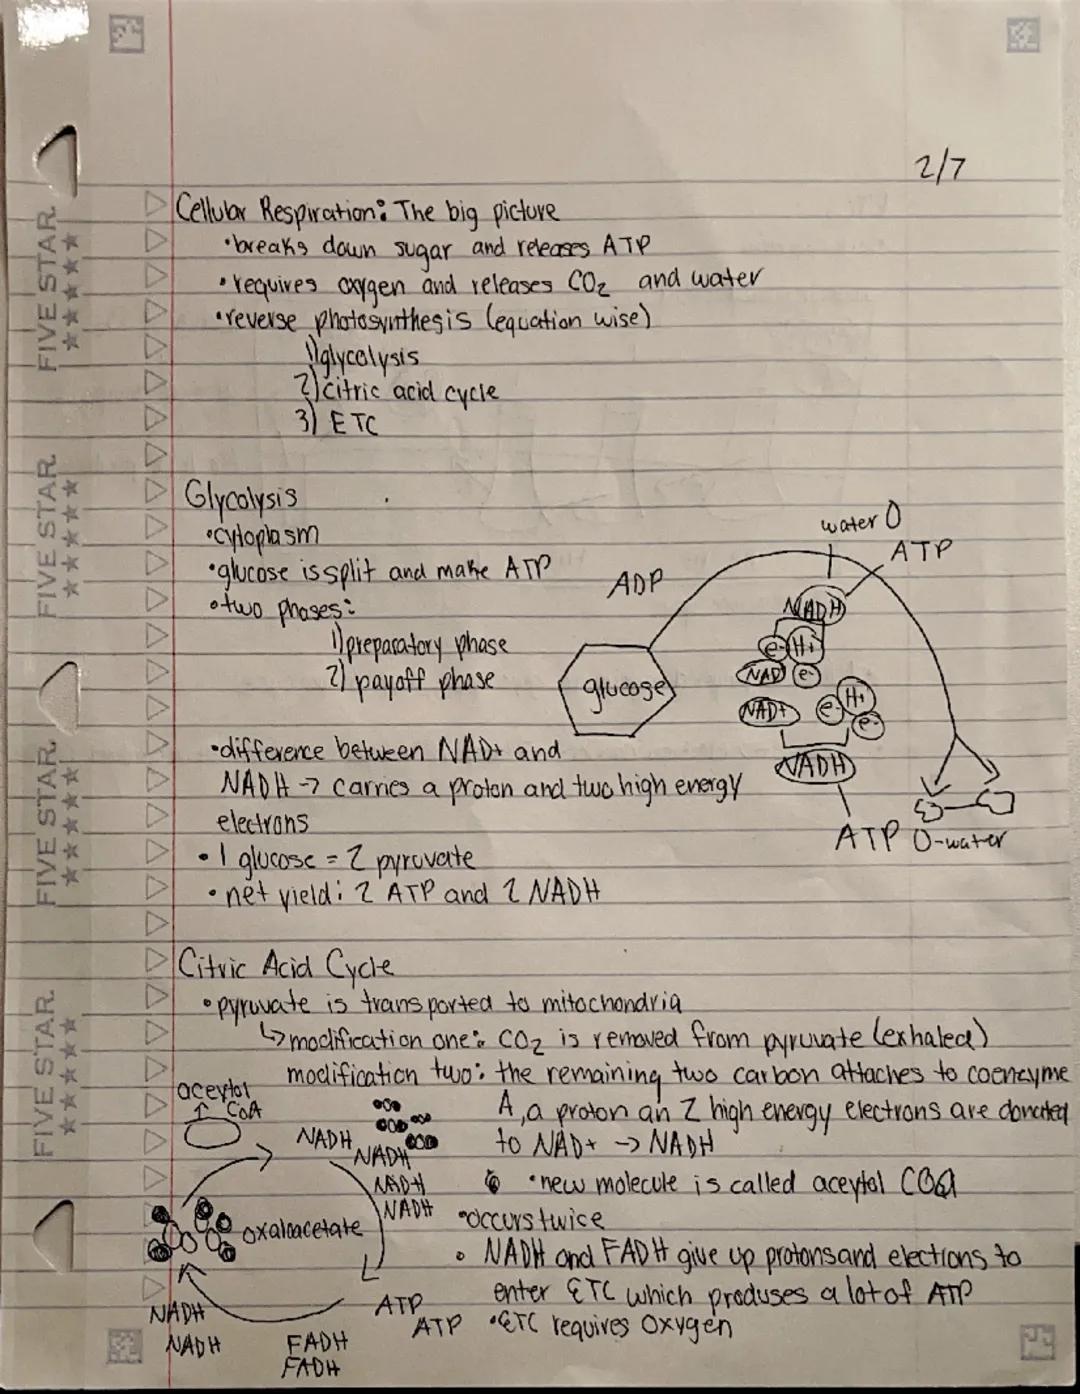 2/7
Cellular Respiration: The big picture
•breaks down sugar and releases ATP
•requires oxygen and releases CO2 and water
•reverse photosynthesis (equation wise)
1)glycolysis
2)citric acid cycle
3) ETC
Glycolysis
•cytoplasm
•glucose is split and make ATP
•two phases:
1)preparatory phase
2) payoff phase
water
ATP
ADP
NADH
e- H+
NAD e-
glucose
NAD+ e- H+ e-
NADH
ATP O-water
•difference between NAD+ and
NADH → carries a proton and two high energy
electrons
•1 glucose = 2 pyruvate
•net yield: 2 ATP and 2 NADH
Citric Acid Cycle
•pyruvate is transported to mitochondria
↳modification one: CO2 is removed from pyruvate (exhaled)
modification two: the remaining two carbon attaches to coenzyme
A, a proton an 2 high energy electrons are donated
to NAD+ → NADH
•new molecule is called aceytol COA
•occurs twice
•NADH and FADH give up protons and electrons to
enter ETC which produses a lot of ATP
•ETC requires oxygen
aceytol
CoA
NADH
NADH
NADH
NADH
oxaloacetate
ATP
ATP
FADH
FADH
NADH
NADH
FIVE STAR.
FIVE STAR.
FIVE STAR.
FIVE STAR.